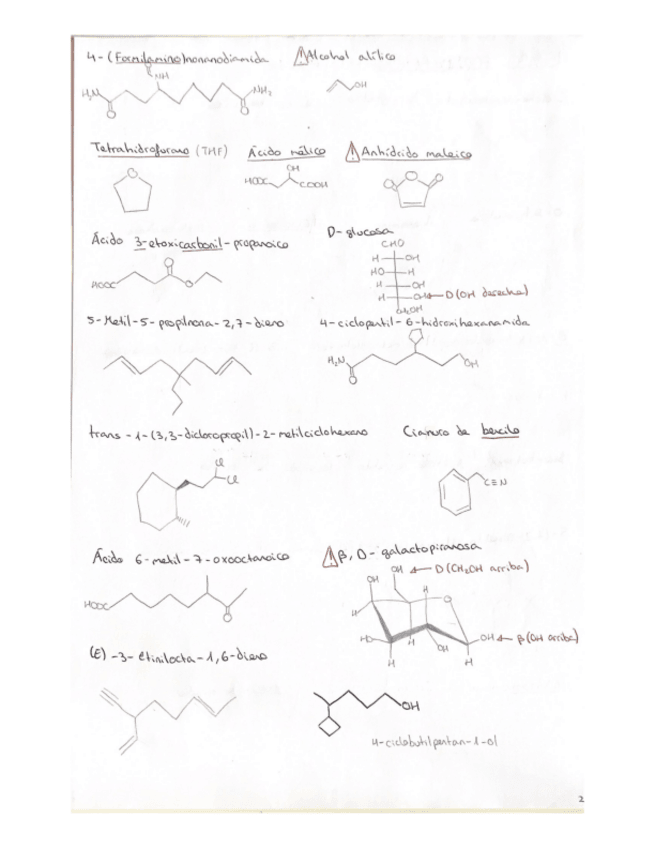 4-(Formilamino)nonanodiamida ⚠ Alcohol alílico
NH
H₂N NH₂ OH
O O
Tetrahidrofurano (THF) Ácido málico ⚠ Anhídrido maleico
O OH O O O
HOOC COOH
Ácido 3-etoxicarbonil-propanoico D-glucosa
CHO
O H OH
HO H
HOOC O H OH
H OH ← D (OH derecha)
CH₂OH
5-Metil-5-propilnona-2,7-dieno 4-ciclopentil-6-hidroxihexanamida
H₂N OH
O
trans-1-(3,3-dicloropropil)-2-metilciclohexano Cianuro de bencilo
Cl
Cl C≡N
Ácido 6-metil-7-oxooctanoico ⚠ β, D-galactopiranosa
OH ← D (CH₂OH arriba)
OH H O
HOOC O H
HO H OH OH ← β (OH arriba)
H H
(E)-3-etinilocta-1,6-dieno
OH
4-ciclobutilpentan-1-ol
2